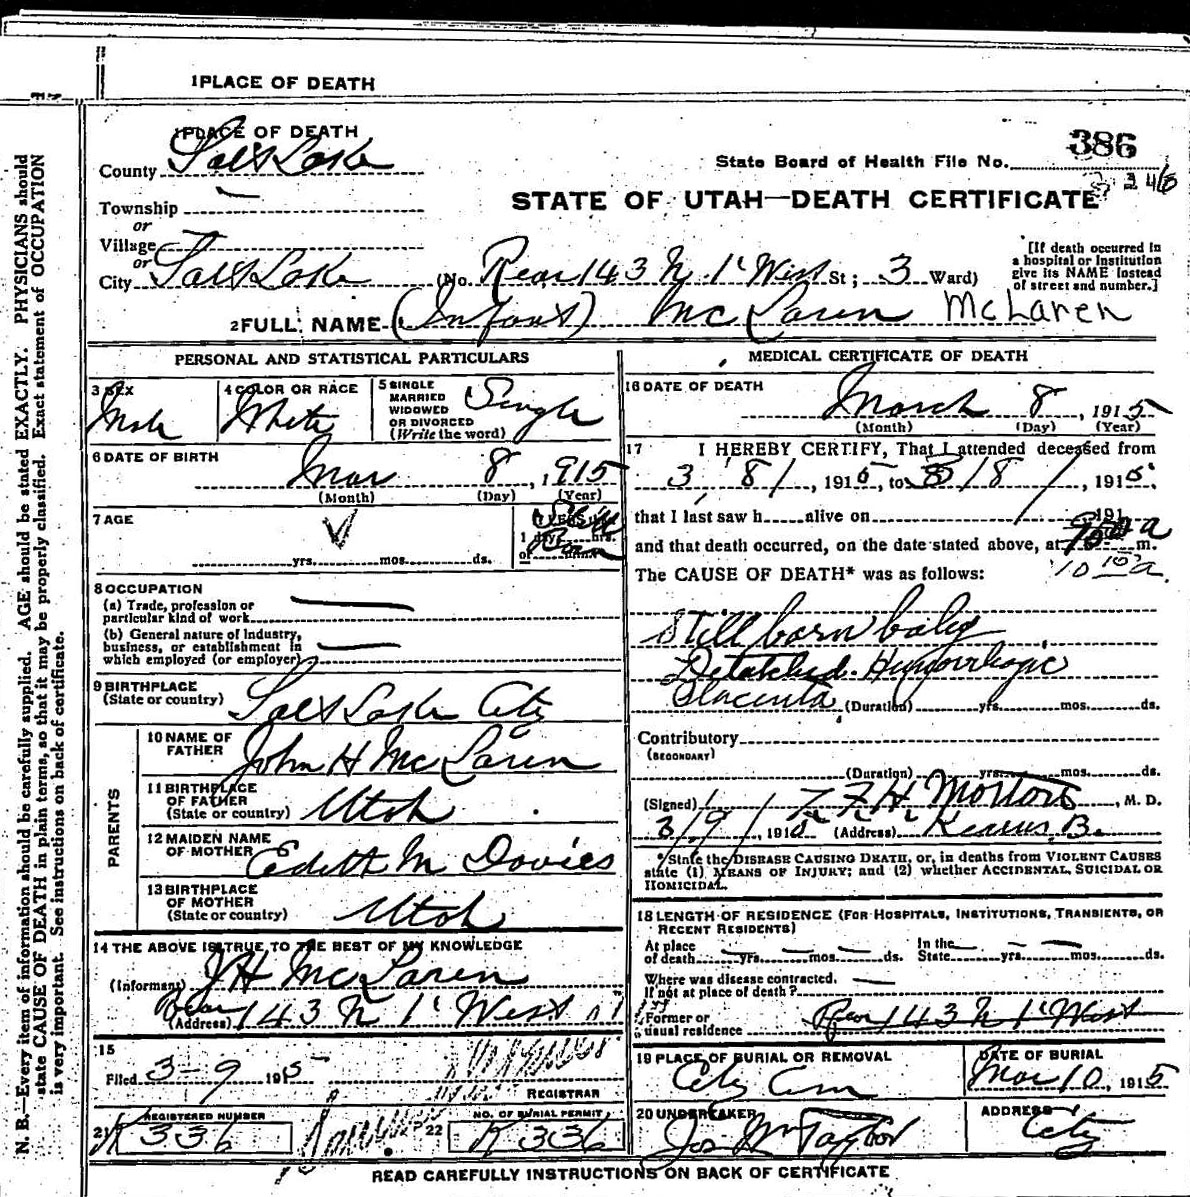 1 PLACE OF DEATH
1 PLACE OF DEATH
County Salt Lake
State Board of Health File No. 386
246
STATE OF UTAH—DEATH CERTIFICATE
Township
or
Village
or
City Salt Lake (No. Rear 143 N 1st West St; 3 Ward)
[If death occurred in a hospital or institution give its NAME instead of street and number.]
2 FULL NAME (Infant) McLaren McLaren
PERSONAL AND STATISTICAL PARTICULARS
3 SEX Male
4 COLOR OR RACE White
5 SINGLE MARRIED WIDOWED OR DIVORCED (Write the word) Single
6 DATE OF BIRTH Mar 8, 1915
(Month) (Day) (Year)
7 AGE Still Born
yrs. mos. ds.
8 OCCUPATION
(a) Trade, profession or particular kind of work
(b) General nature of industry, business, or establishment in which employed (or employer)
9 BIRTHPLACE
(State or country) Salt Lake City
PARENTS
10 NAME OF FATHER John H McLaren
11 BIRTHPLACE OF FATHER (State or country) Utah
12 MAIDEN NAME OF MOTHER Edith M Davies
13 BIRTHPLACE OF MOTHER (State or country) Utah
14 THE ABOVE IS TRUE TO THE BEST OF MY KNOWLEDGE
(Informant) J H McLaren
(Address) Rear 143 N 1st West
15
Filed 3-9 1915
REGISTRAR
21 REGISTERED NUMBER K 336
22 NO. OF BURIAL PERMIT K 336
MEDICAL CERTIFICATE OF DEATH
16 DATE OF DEATH
March 8, 1915
(Month) (Day) (Year)
17 I HEREBY CERTIFY, That I attended deceased from
3/8/, 1915, to 3/8/, 1915,
that I last saw h alive on 191
and that death occurred, on the date stated above, at m.
10 10 a.
The CAUSE OF DEATH* was as follows:
Still born baby
Detatched Hemorrhagic
Placenta (Duration) yrs. mos. ds.
Contributory
(SECONDARY)
(Duration) yrs. mos. ds.
(Signed) Morton, M. D.
3/9/, 1915 (Address) Kearns B.
* State the DISEASE CAUSING DEATH, or, in deaths from VIOLENT CAUSES
state (1) MEANS OF INJURY; and (2) whether ACCIDENTAL, SUICIDAL OR
HOMICIDAL.
18 LENGTH OF RESIDENCE (FOR HOSPITALS, INSTITUTIONS, TRANSIENTS, OR
RECENT RESIDENTS)
At place of death yrs. mos. ds. In the State yrs. mos. ds.
Where was disease contracted.
If not at place of death?
Former or usual residence Rear 143 N 1st West
19 PLACE OF BURIAL OR REMOVAL
City Cem
DATE OF BURIAL
Mar 10, 1915
20 UNDERTAKER
Jos Wm Taylor
ADDRESS
City
READ CAREFULLY INSTRUCTIONS ON BACK OF CERTIFICATE
N. B.—Every item of information should be carefully supplied. AGE should be stated EXACTLY. PHYSICIANS should
state CAUSE OF DEATH in plain terms, so that it may be properly classified. Exact statement of OCCUPATION
is very important. See instructions on back of certificate.